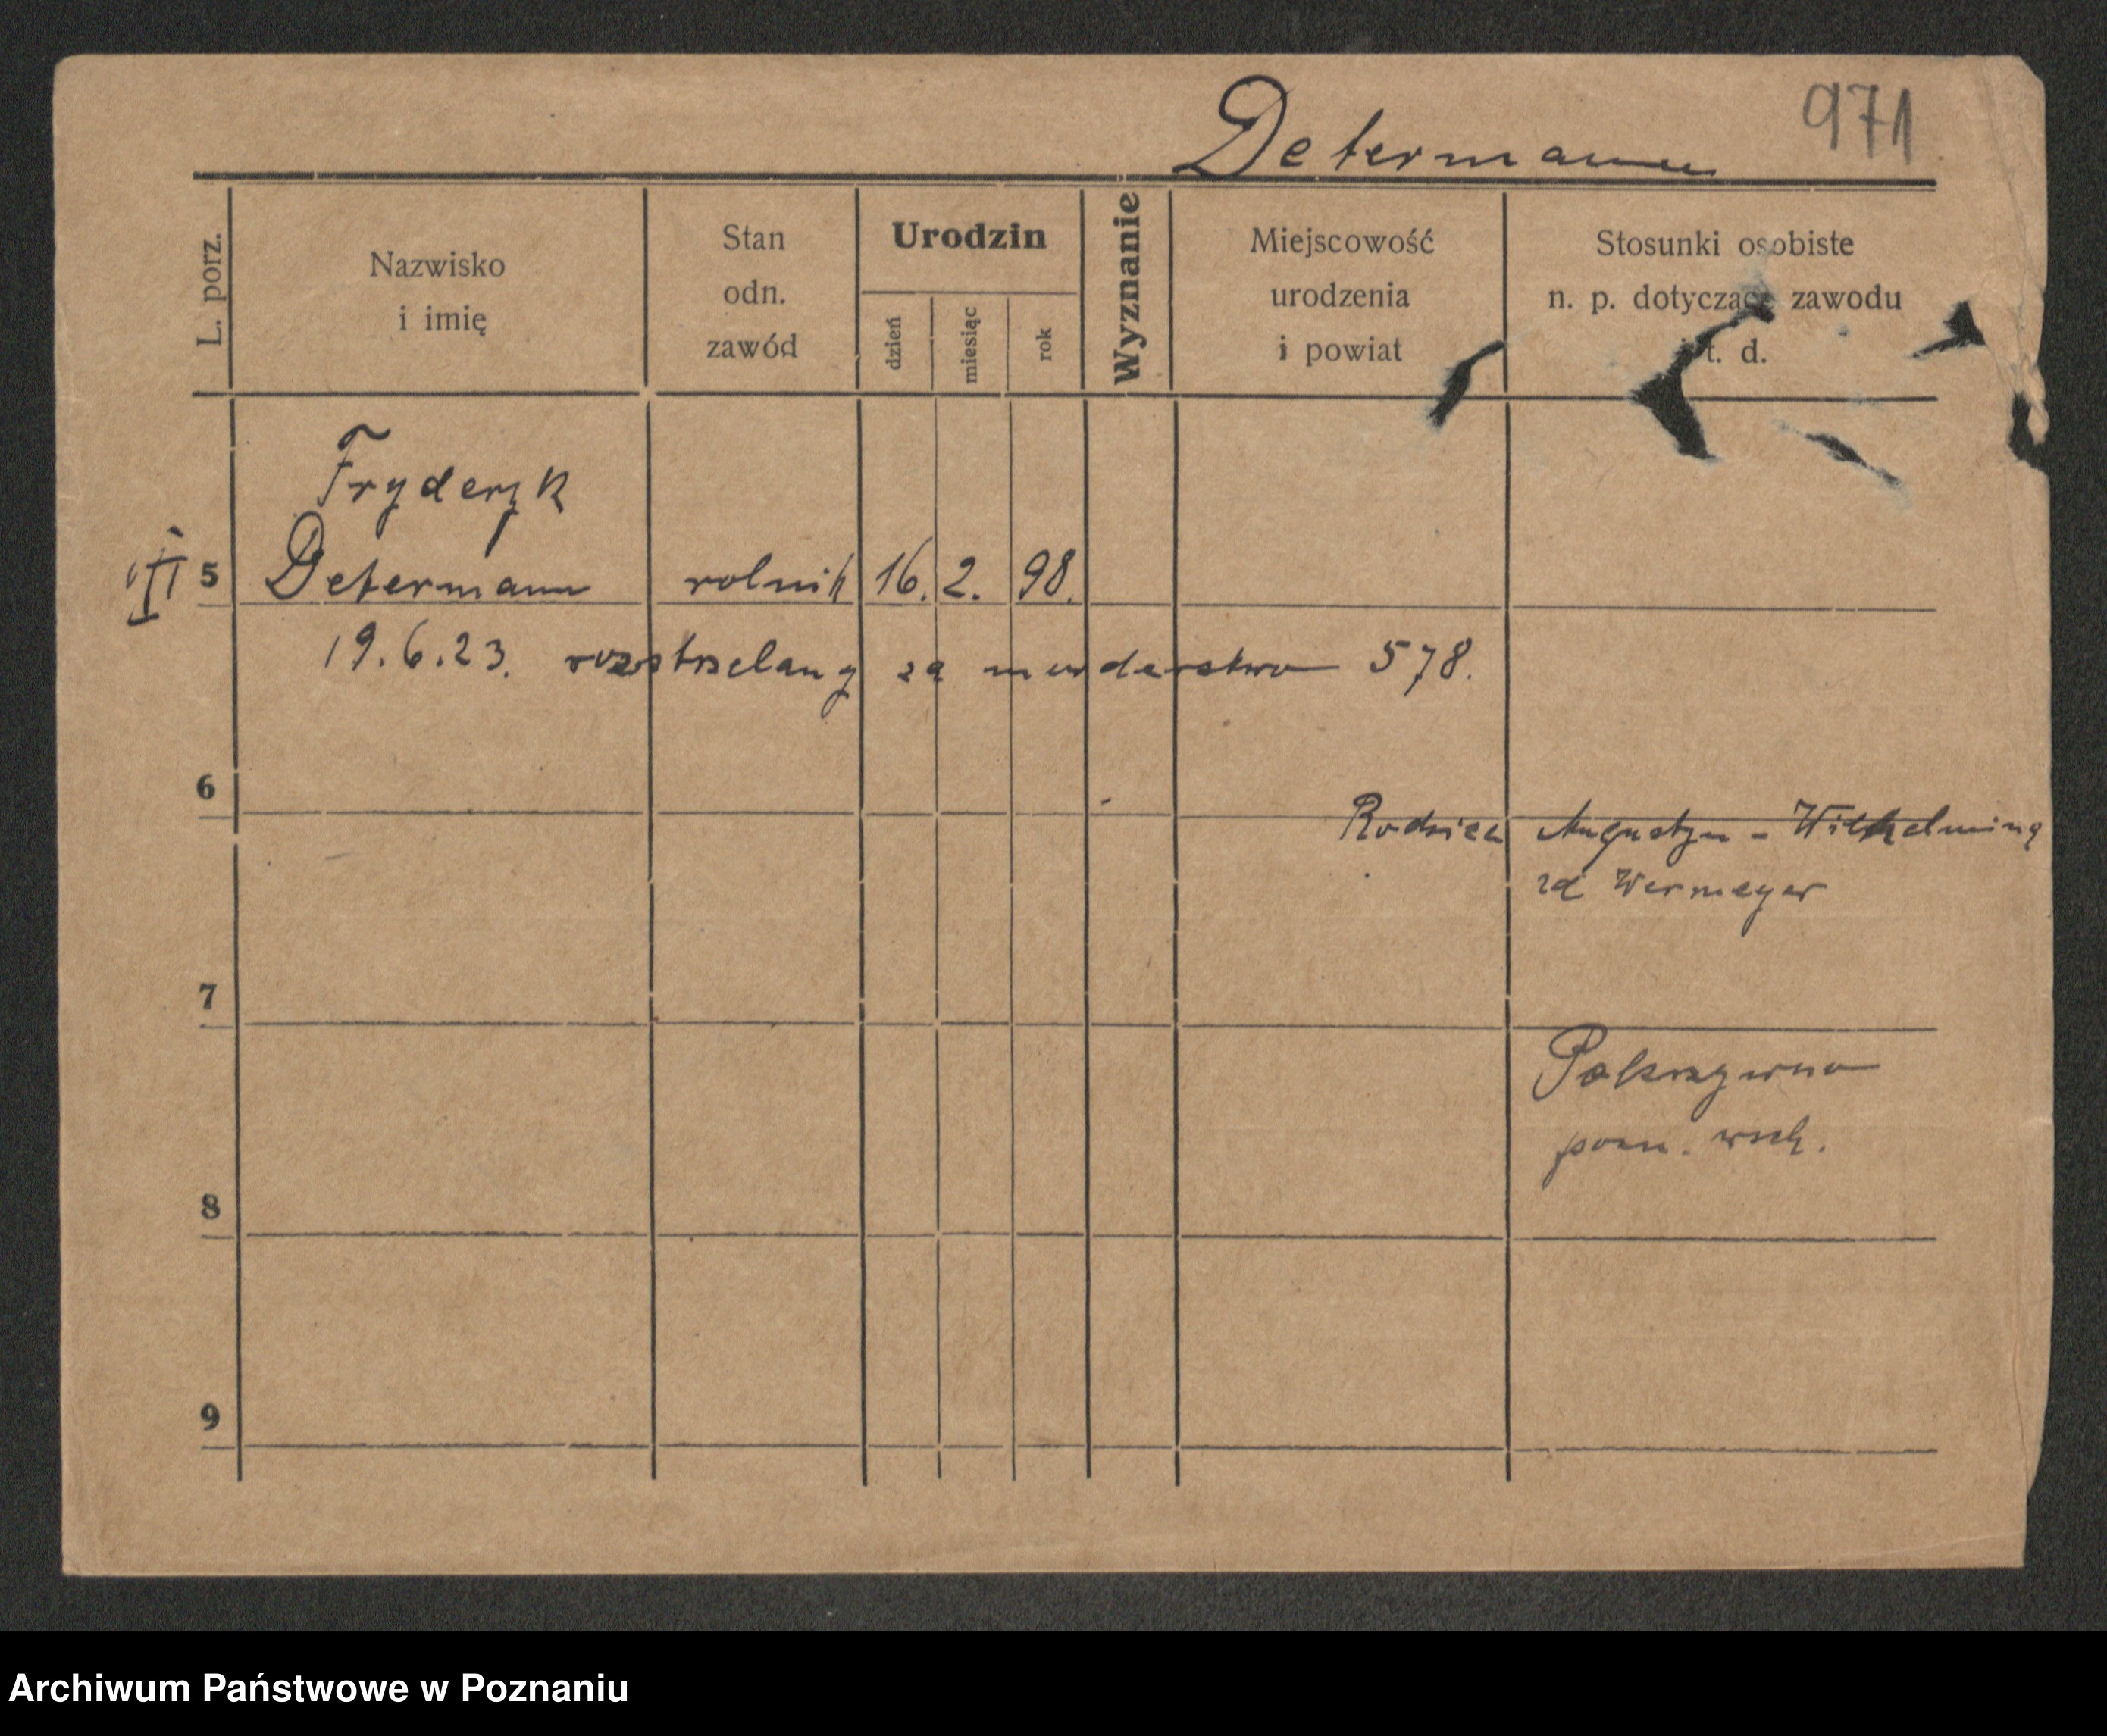 Determann
971
L. porz.
Nazwisko
i imię
Stan
odn.
zawód
Urodzin
dzień
miesiąc
rok
Wyznanie
Miejscowość
urodzenia
i powiat
Stosunki osobiste
n. p. dotyczące zawodu
i t. d.
Fryderyk
5 Determann rolnik 16. 2. 98.
19.6.23. rozstrzelany za morderstwo 578.
6
Rodzice Augustyn - Wilhelmina
zd Wermeyer
7
Pokrzywno
pozn. wsch.
8
9
Archiwum Państwowe w Poznaniu